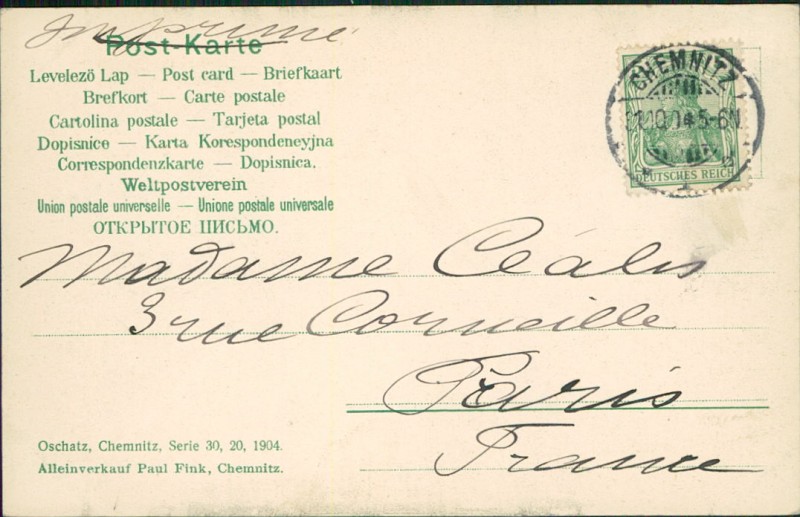 Imprimé
Post-Karte
Levelezö Lap — Post card — Briefkaart
Brefkort — Carte postale
Cartolina postale — Tarjeta postal
Dopisnice — Karta Korespondeneyjna
Correspondenzkarte — Dopisnica.
Weltpostverein
Union postale universelle — Unione postale universale
ОТКРЫТОЕ ПИСЬМО.
CHEMNITZ
10.04 5-6N.
1
DEUTSCHES REICH
Madame Céalis
3 rue Corneille
Paris
France
Oschatz, Chemnitz, Serie 30, 20, 1904.
Alleinverkauf Paul Fink, Chemnitz.